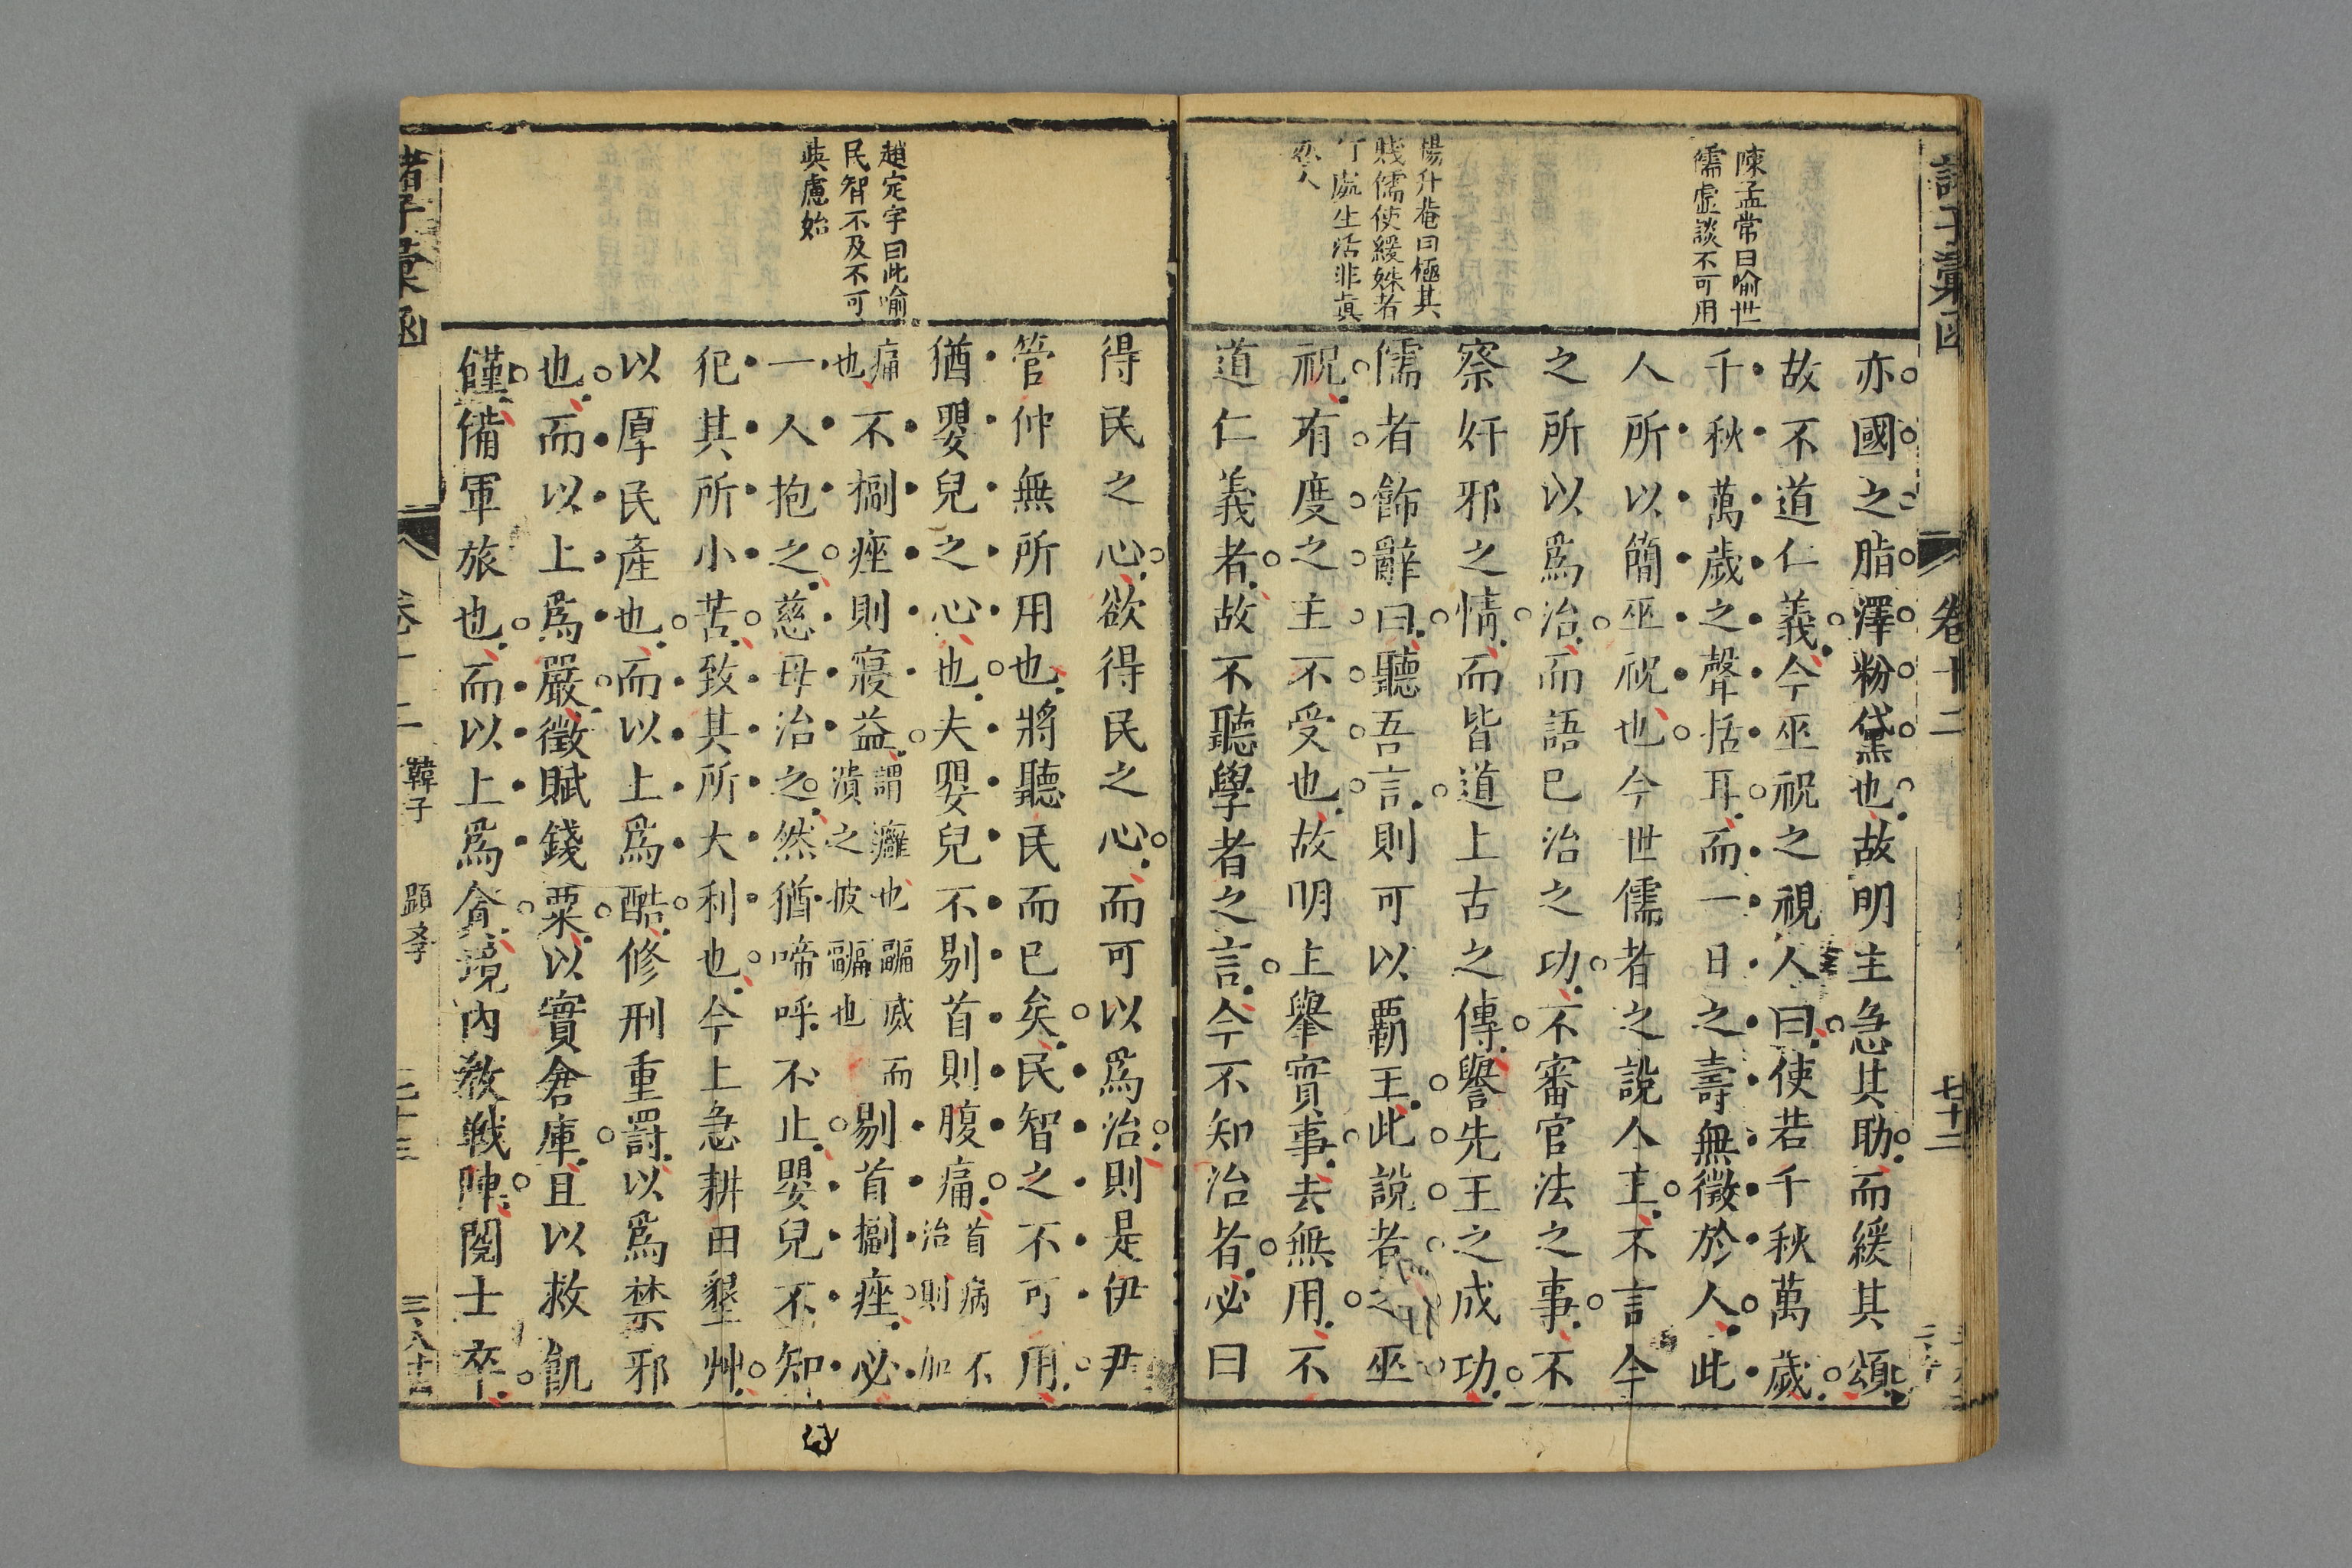 陳孟常曰喻世
儒虛談不可用
楊升菴曰極其
賤儒使緩姝者
生活非真
亦國之脂澤粉黛也故明主急其助而緩其頌
故不道仁義今巫祝之視人曰使若千秋萬歲
千秋萬歲之聲括耳而一日之壽無徵於人此
人所以簡巫祝也今世儒者之說人主不言今
之所以爲治而語已治之功不審官法之事不
察奸邪之情而皆道上古之傳譽先王之成功
儒者飾辭曰聽吾言則可以覇王此說者之巫
祝有度之主不受也故明上舉實事去無用不
道仁義者故不聽學者之言今不知治者必曰
卷十二
七十二
趙定宇曰此喻
民智不及不可
與慮始
得民之心欲得民之心而可以爲治則是伊尹
管仲無所用也將聽民而已矣民智之不可用
猶嬰兒之心也夫嬰兒不剔首則腹痛首病不治則加
痛也不揊痤則寢益謂癰也潰之披副也副烕而剔首揊痤必
一人抱之慈母治之然猶啼呼不止嬰兒不知
犯其所小苦致其所大利也今上急耕田墾艸
以厚民產也而以上爲酷修刑重罰以爲禁邪
也而以上爲嚴徵賦錢粟以實倉庫且以救飢
饉備軍旅也而以上爲貪境內教戰陣閱士卒
諸子彙函
卷十二
韓子
顯學